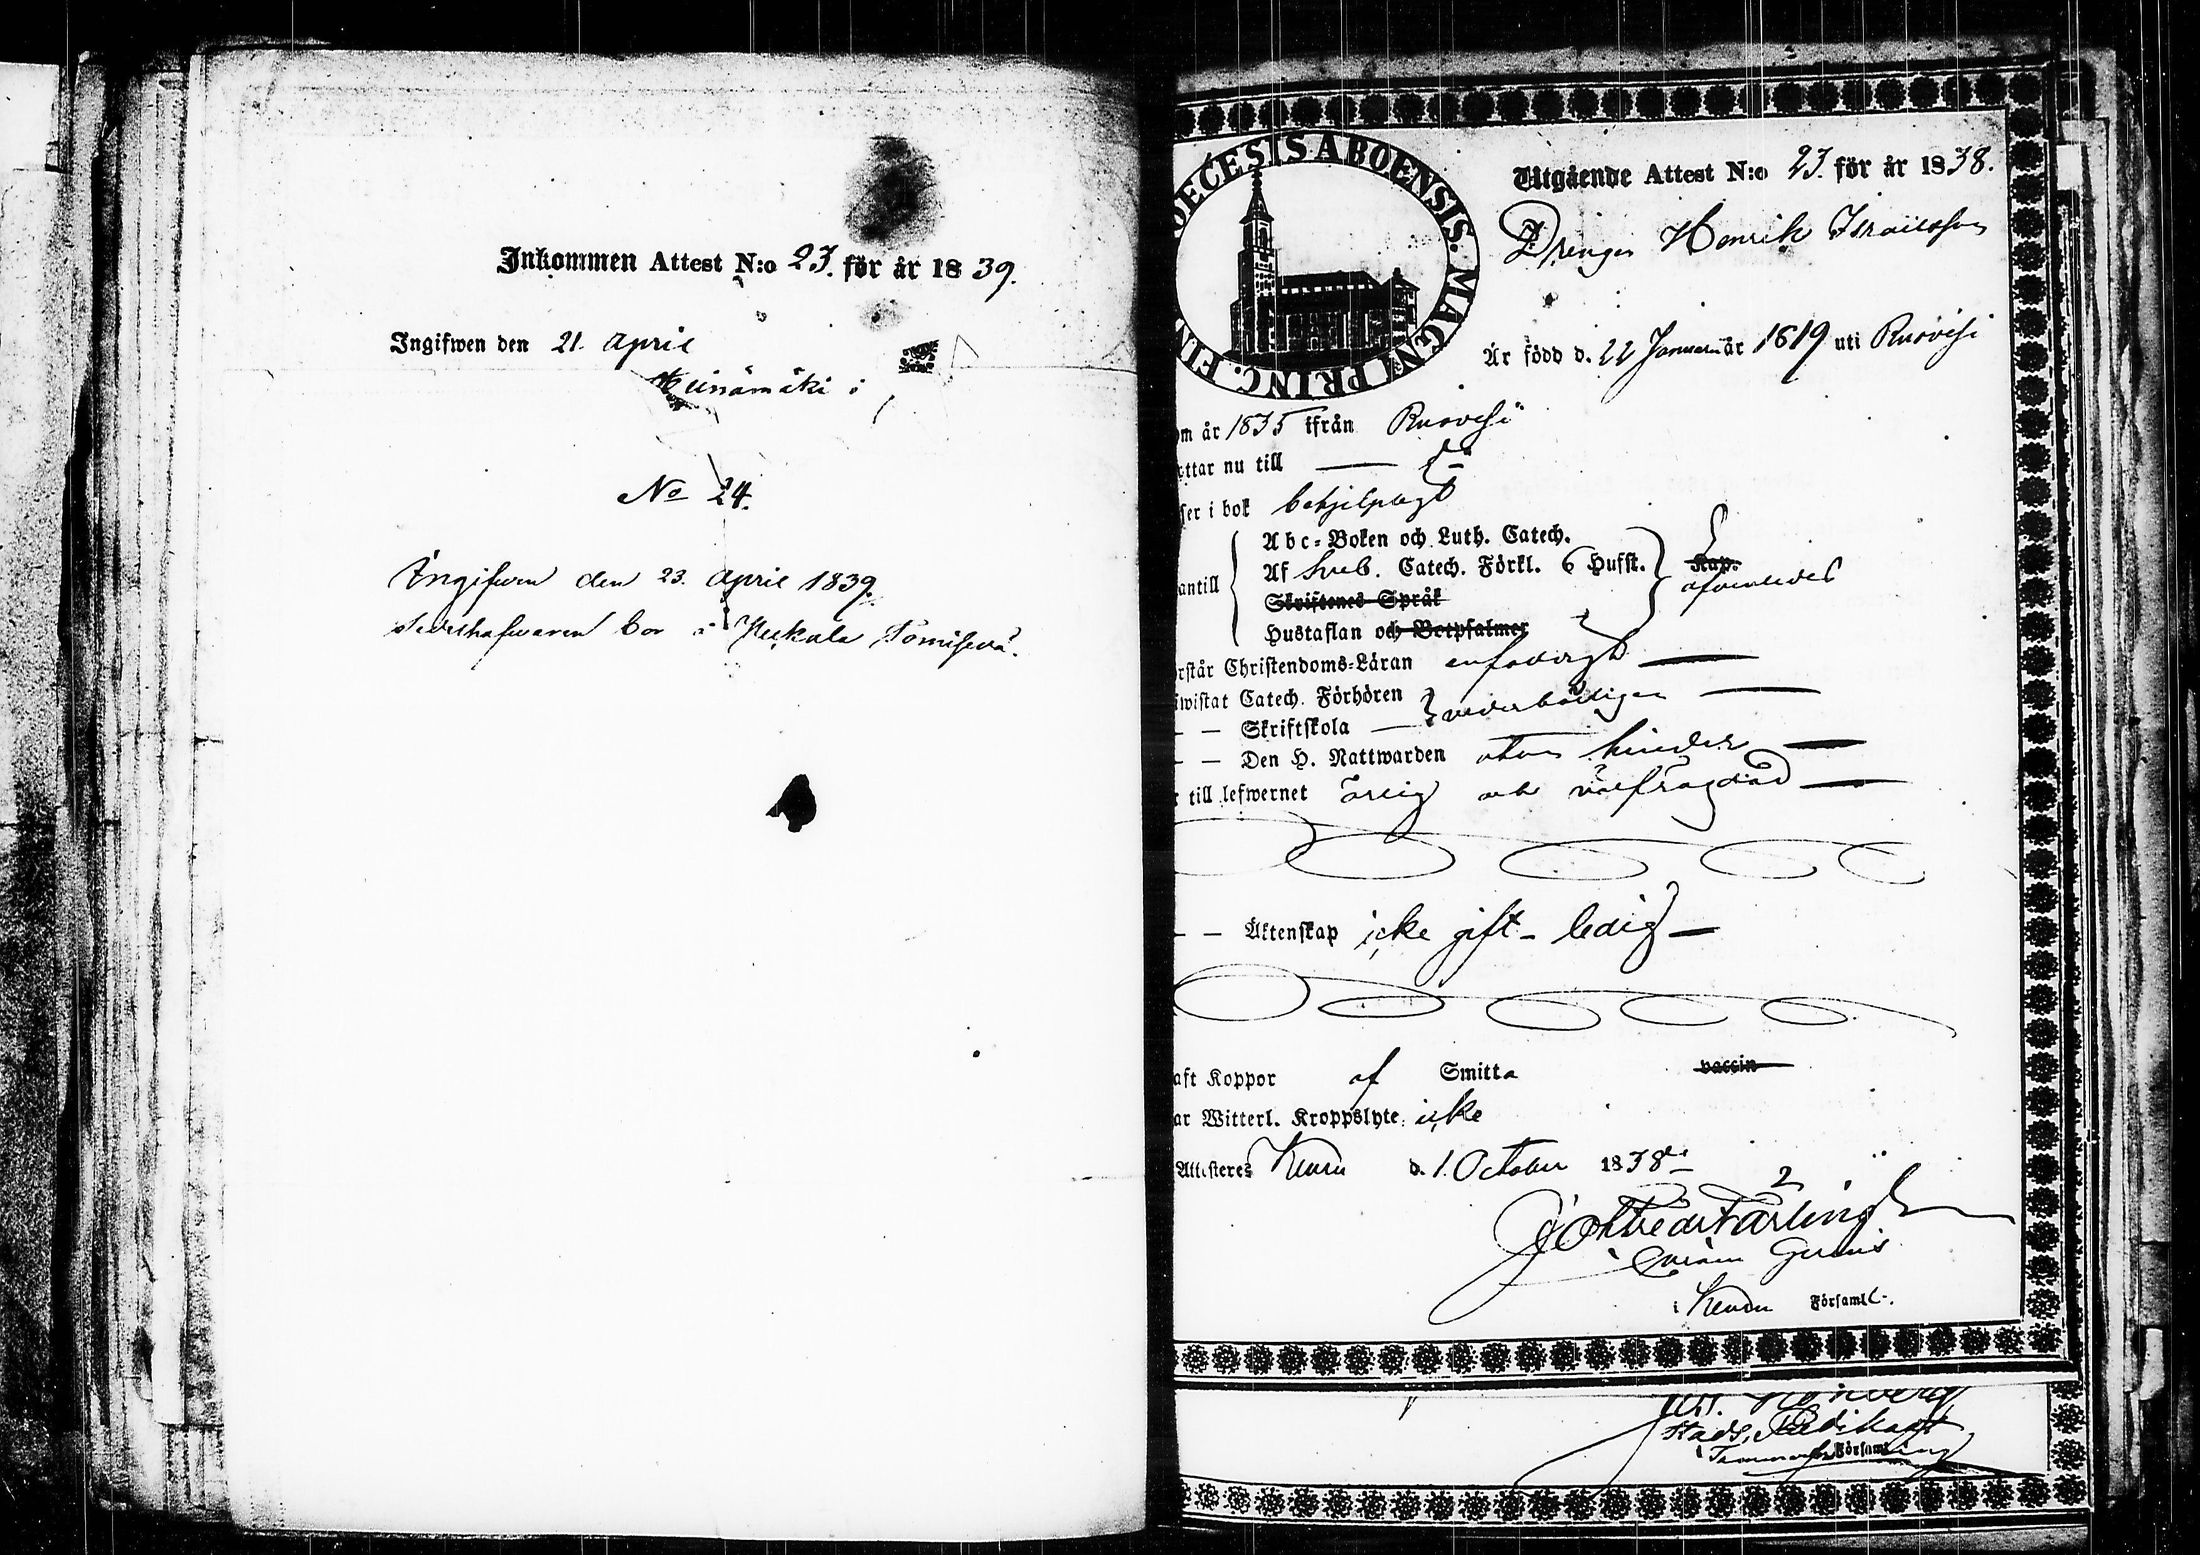 Inkommen Attest N:o 23. för år 1839.
Ingifwen den 21. April
Heinämäki i
No 24.
Ingifwen den 23. April 1839.
bor i
DECESIS ABOENSIS. MAGNI PRINC. FIN
Utgående Attest N:o 23. för år 1838.
Drengen Henrik Israelsson
Är född d. 22 Januari år 1819 uti Ruovesi
om år 1835 ifrån Ruovesi
ttar nu till — d:o
ser i bok behjelpligt
Abc-Boken och Luth. Catech.
Af Sveb. Catech. Förkl. 6 Hufst. Kap.
antill
Skriftenes Språk
Hustaflan och Botpsalmer
rstår Christendoms-Läran enfaldigt —
iwistat Catech. Förhören
— — Skriftskola — vederbörligen —
— — Den H. Nattwarden utan hinder —
r till lefwernet ärlig och välfrägdad —
— — Äktenskap icke gift - ledig —
aft Koppor af Smitta vaccin
ar Witterl. Kroppslyte: icke
Attesteres Keuru d. 1. October 1838
i Keuru Församl.
Församl